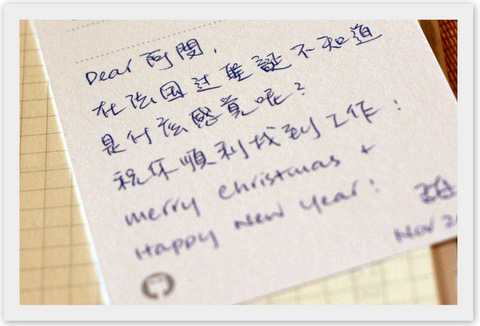 Dear 阿閔,
在法国过聖誕不知道
是什麼感覺呢?
祝你順利找到工作!
merry christmas +
Happy New Year!
Nov 2